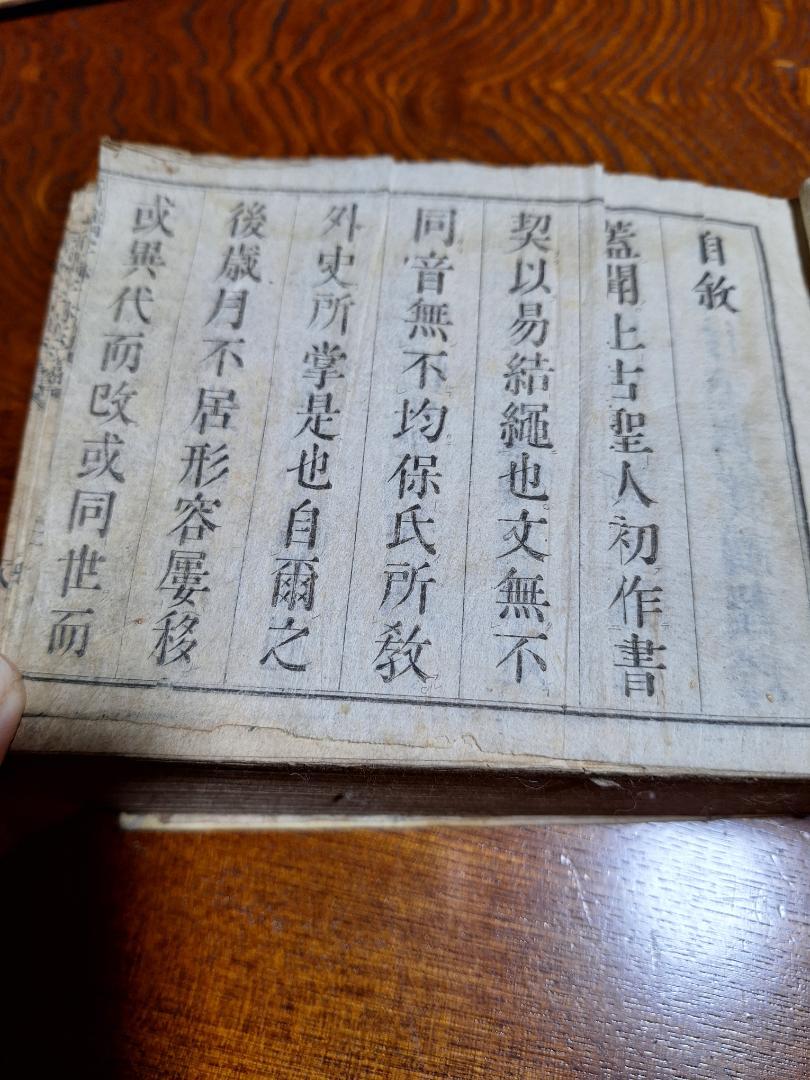 自敘
蓋聞上古聖人初作書
契以易結繩也文無不
同音無不均保氏所敎
外史所掌是也自爾之
後歲月不居形容屢移
或異代而改或同世而